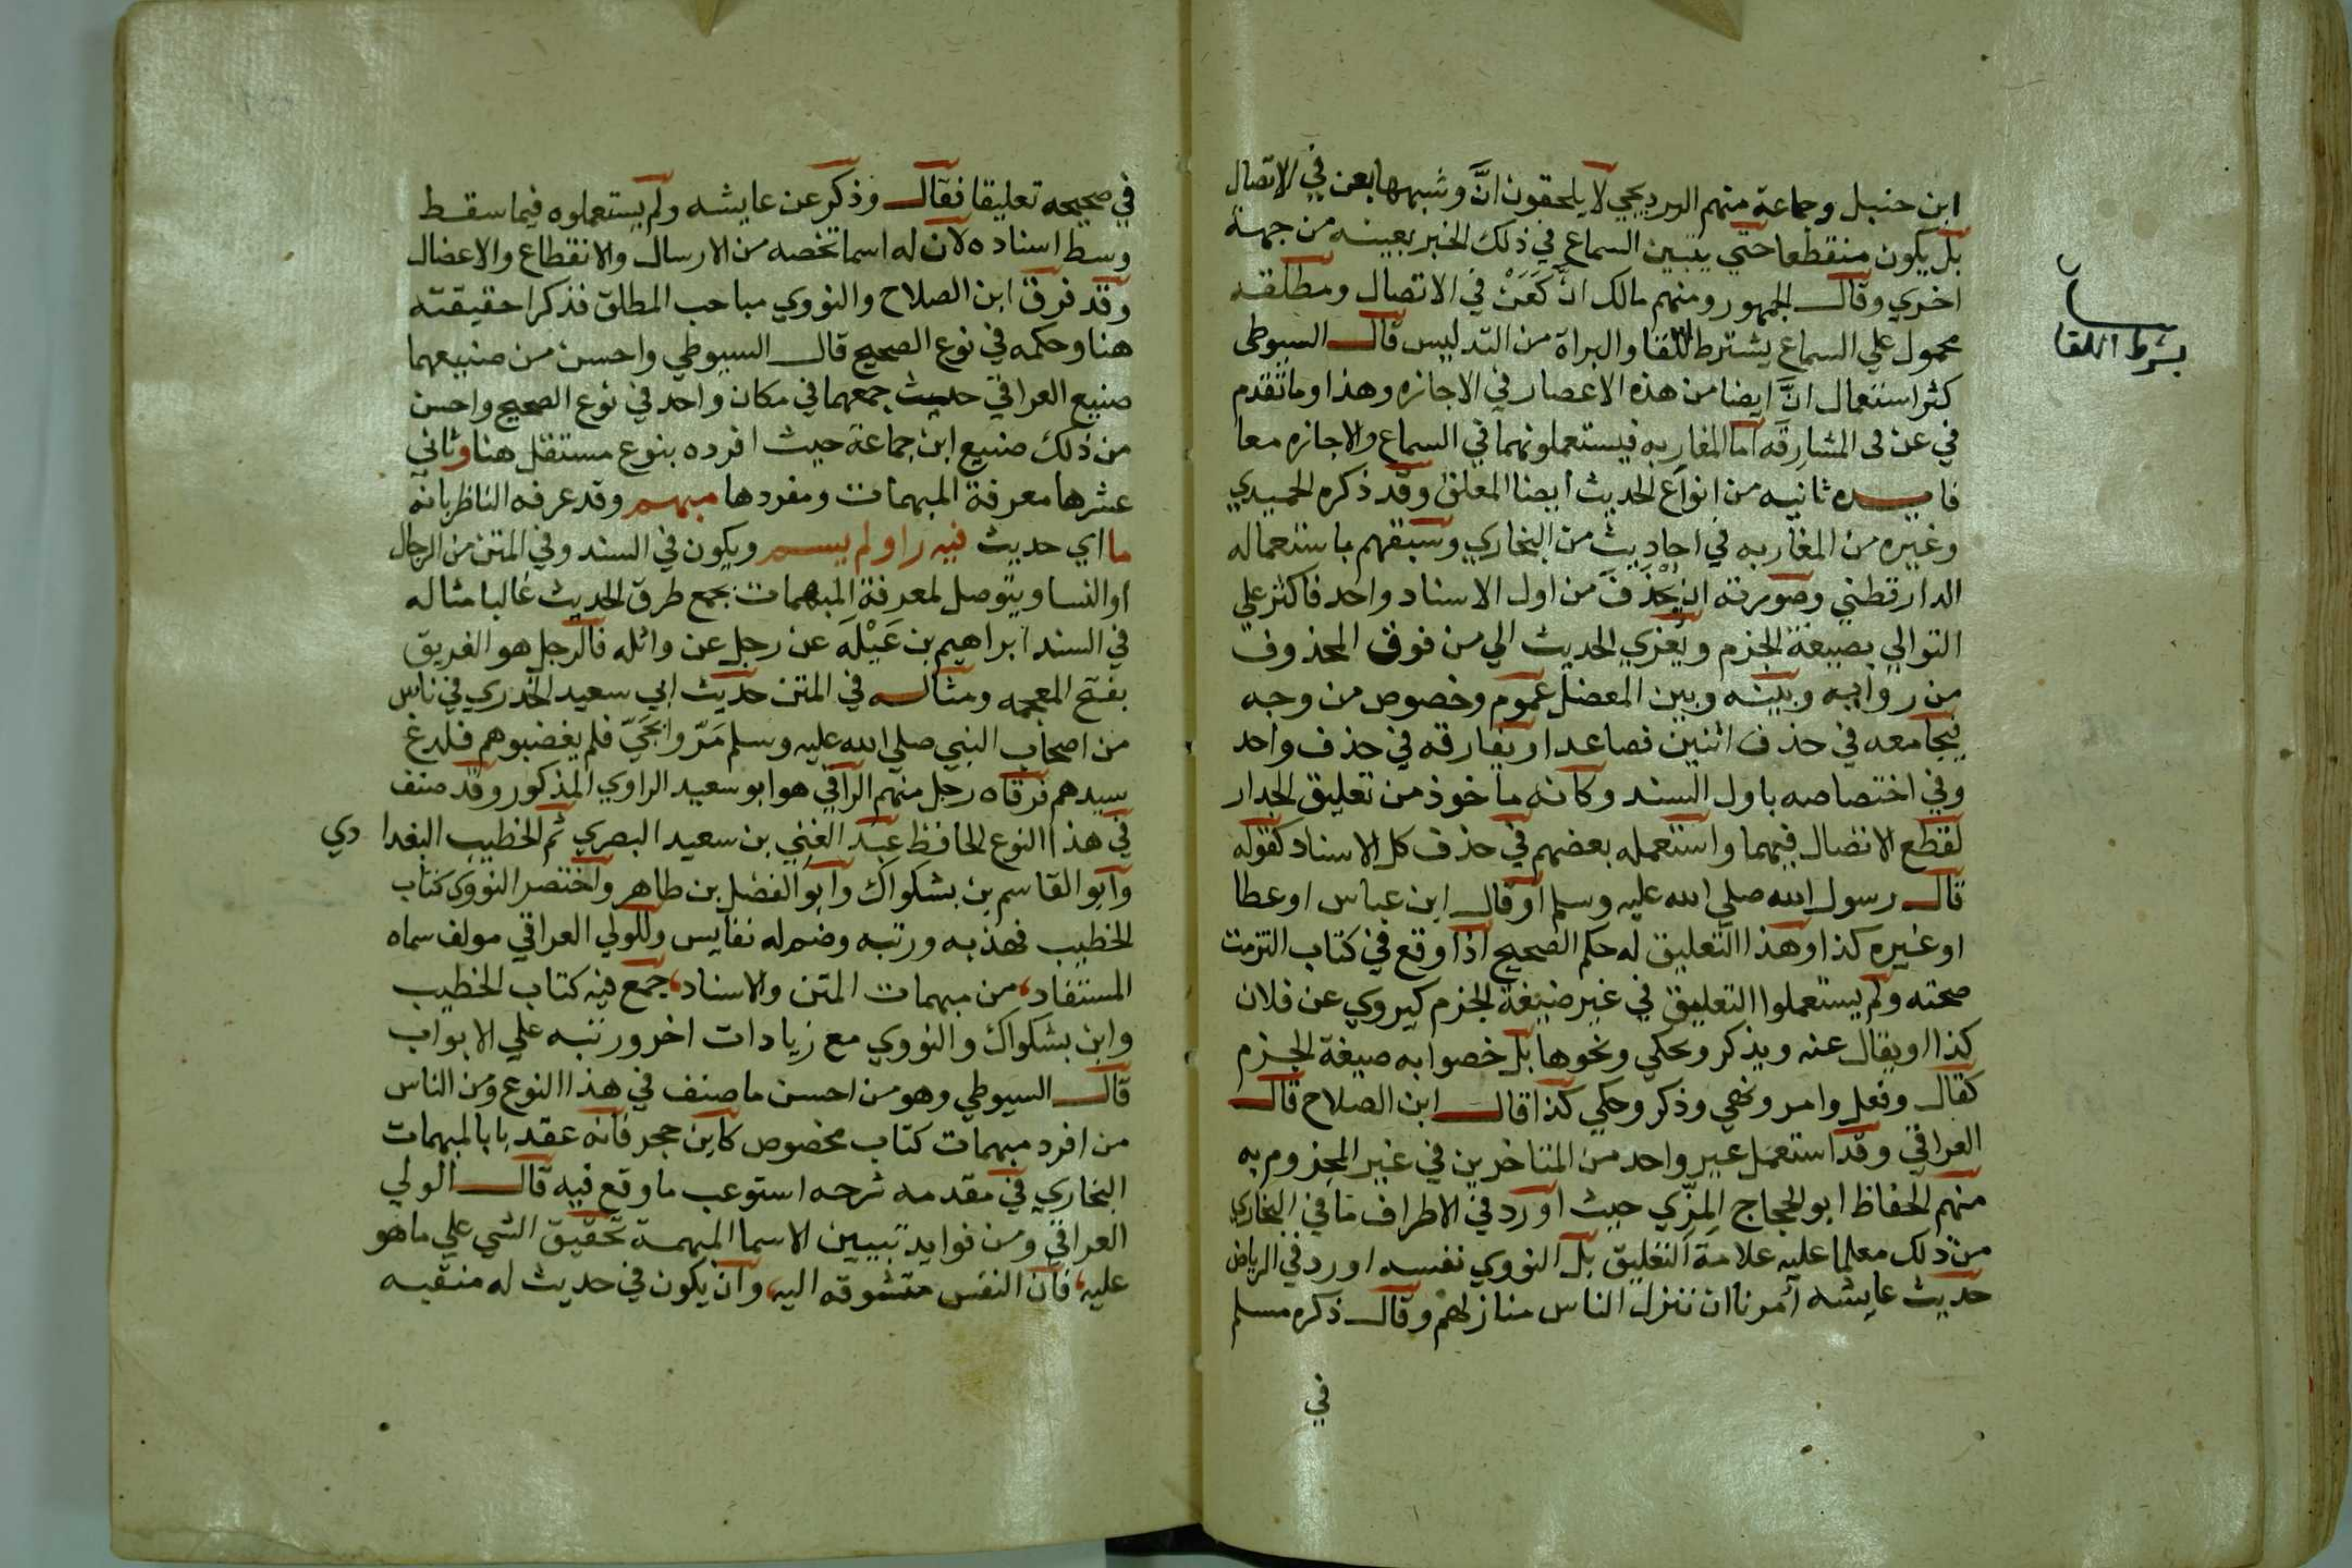 ابن حنبل وجماعة منهم البرديجي لا يلحقون انَّ وشبهها بعن في الاتصال
بل يكون منقطعا حتي يتبين السماع في ذلك الخبر بعينه من جهة
اخري وقال الجمهور ومنهم مالك انَّ كَعَنْ في الاتصال ومطلقه
محمول علي السماع يشترط اللقا والبراة من التدليس قال السيوطي
بشرط اللقا
كثر استعمال انَّ ايضا من هذه الاعصار في الاجازه وهذا وما تقدم
في عن في المشارقه اما المغاربه فيستعملونهما في السماع والاجازه معا
فايده ثانيه من انواع الحديث ايضا المعلق وقد ذكره الحميدي
وغيره من المغاربه في احاديث من البخاري وسبقهم باستعماله
الدارقطني وصورته ان يُحْذَفَ من اول الاسناد واحد فاكثر علي
التوالي بصيغة الجزم ويعزي الحديث الي من فوق المحذوف
من رواته وبينه وبين المعضل عموم وخصوص من وجه
فيجامعه في حذف اثنين فصاعدا ويفارقه في حذف واحد
وفي اختصاصه باول السند وكانه ماخوذ من تعليق الجدار
لقطع الاتصال فيهما واستعمله بعضهم في حذف كل الاسناد كقوله
قال رسول الله صلي الله عليه وسلم او قال ابن عباس او عطا
او غيره كذا وهذا التعليق له حكم الصحيح اذا وقع في كتاب التزمت
صحته ولم يستعملوا التعليق في غير صيغة الجزم كيروي عن فلان
كذا او يقال عنه ويذكر ويحكي ونحوها بل خصوا به صيغة الجزم
كقال وفعل وامر ونهي وذكر وحكي كذا قال ابن الصلاح قال
العراقي وقد استعمل غير واحد من المتاخرين في غير المجزوم به
منهم الحفاظ ابو الحجاج المِزّي حيث اورد في الاطراف ما في البخاري
من ذلك معلما عليه علامة التعليق بل النووي نفسه اورد في الرياض
حديث عايشه أمرنا ان ننزل الناس منازلهم وقال ذكره مسلم
في
في صحيحه تعليقا فقال وذكر عن عايشه ولم يستعملوه فيما سقط
وسط اسناده لان له اسما تخصه من الارسال والانقطاع والاعضال
وقد فرق ابن الصلاح والنووي مباحب المطلق فذكرا حقيقته
هنا وحكمه في نوع الصحيح قال السيوطي واحسن من صنيعهما
صنيع العراقي حيث جمعهما في مكان واحد في نوع الصحيح واحسن
من ذلك صنيع ابن جماعة حيث افرده بنوع مستقل هنا وثاني
عشرها معرفة المبهمات ومفردها مبهم وقد عرفه الناظر بانه
ما اي حديث فيه راو لم يسم ويكون في السند وفي المتن من الرجال
او النسا ويتوصل لمعرفة المبهمات بجمع طرق الحديث غالبا مثاله
في السند ابراهيم بن عَبْلَه عن رجل عن واثله فالرجل هو الغريق
بفتح المعجمه ومثاله في المتن حديث ابي سعيد الخدري في ناس
من اصحاب النبي صلي الله عليه وسلم مَرّوا بحَيّ فلم يغضبوهم فلدغ
سيدهم فرقاه رجل منهم الراقي هو ابو سعيد الراوي المذكور وقد صنف
في هذا النوع الحافظ عبد الغني بن سعيد البصري ثم الخطيب البغدا دي
وابو القاسم بن بشكواك وابو الفضل بن طاهر واختصر النووي كتاب
الخطيب فهذبه ورتبه وضم له نفايس وللولي العراقي مولف سماه
المستفاد، من مبهمات المتن والاسناد، جمع فيه كتاب الخطيب
وابن بشكواك والنووي مع زيادات اخر ورتبه علي الابواب
قال السيوطي وهو من احسن ما صنف في هذا النوع ومن الناس
من افرد مبهمات كتاب مخصوص كابن حجر فانه عقد بابا لمبهمات
البخاري في مقدمه شرحه استوعب ما وقع فيه قال الولي
العراقي ومن فوايد تبيين الاسما المبهمة تحقيق الشي علي ما هو
عليه، فان النفس متشوقه اليه، وان يكون في حديث له منقبه